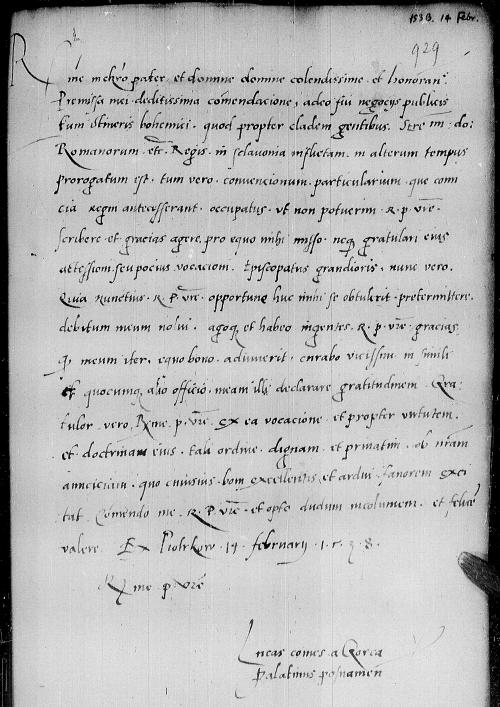 1538. 14 Febr.
929
R
me in chro pater et domine domine colendissime et honoran.
Premissa mei deditissima comendacione, adeo fui negocys publicis
tum Itineris bohemici quod propter cladem gentibus Sere mi do:
Romanorum etc Regis in sclavonia inflictam in alterum tempus
prorogatum est tum vero convencionum particularium que comi
cia regni antecesserant occupatus ut non potuerim R p vre
scribere et gracias agere pro equo mihi misso neq gratulari eius
ascessioni seu pocius vocacioni Episcopatus grandioris nunc vero
Quia Nunctius R P vre opportune huc mihi se obtulerit pretermittere
debitum meum nolui agoq et habeo ingentes R p vre gracias
q meum iter equo bono adiuverit curabo vicissim in simili
et quocunq alio officio meam illi declarare gratitudinem Gra
tulor vero Rme p vre ex ea vocacione et propter virtutem
et doctrinam eius tali ordine dignam et privatim ob nram
amiciciam quo cuiusvis boni excellentis et ardui fauorem exci
tat Comendo me R P vre et opto dudum incolumem et felicr
valere Ex Piotrkow 14 february 1538
R me p vre
Lucas comes a Gorca
Palatinus posnanien